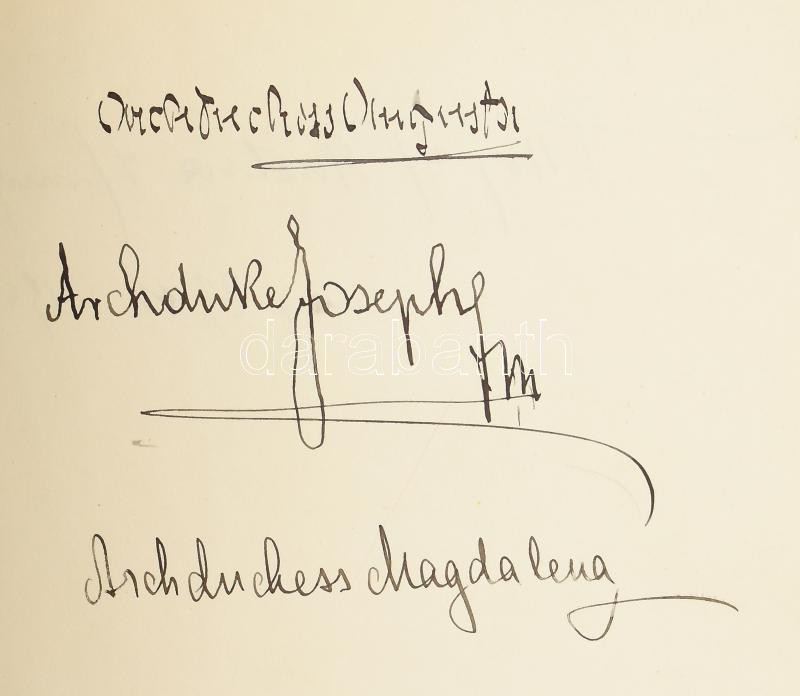 Archduchess Augusta
Archduke Joseph
FM
darabanth
Archduchess Magdalena